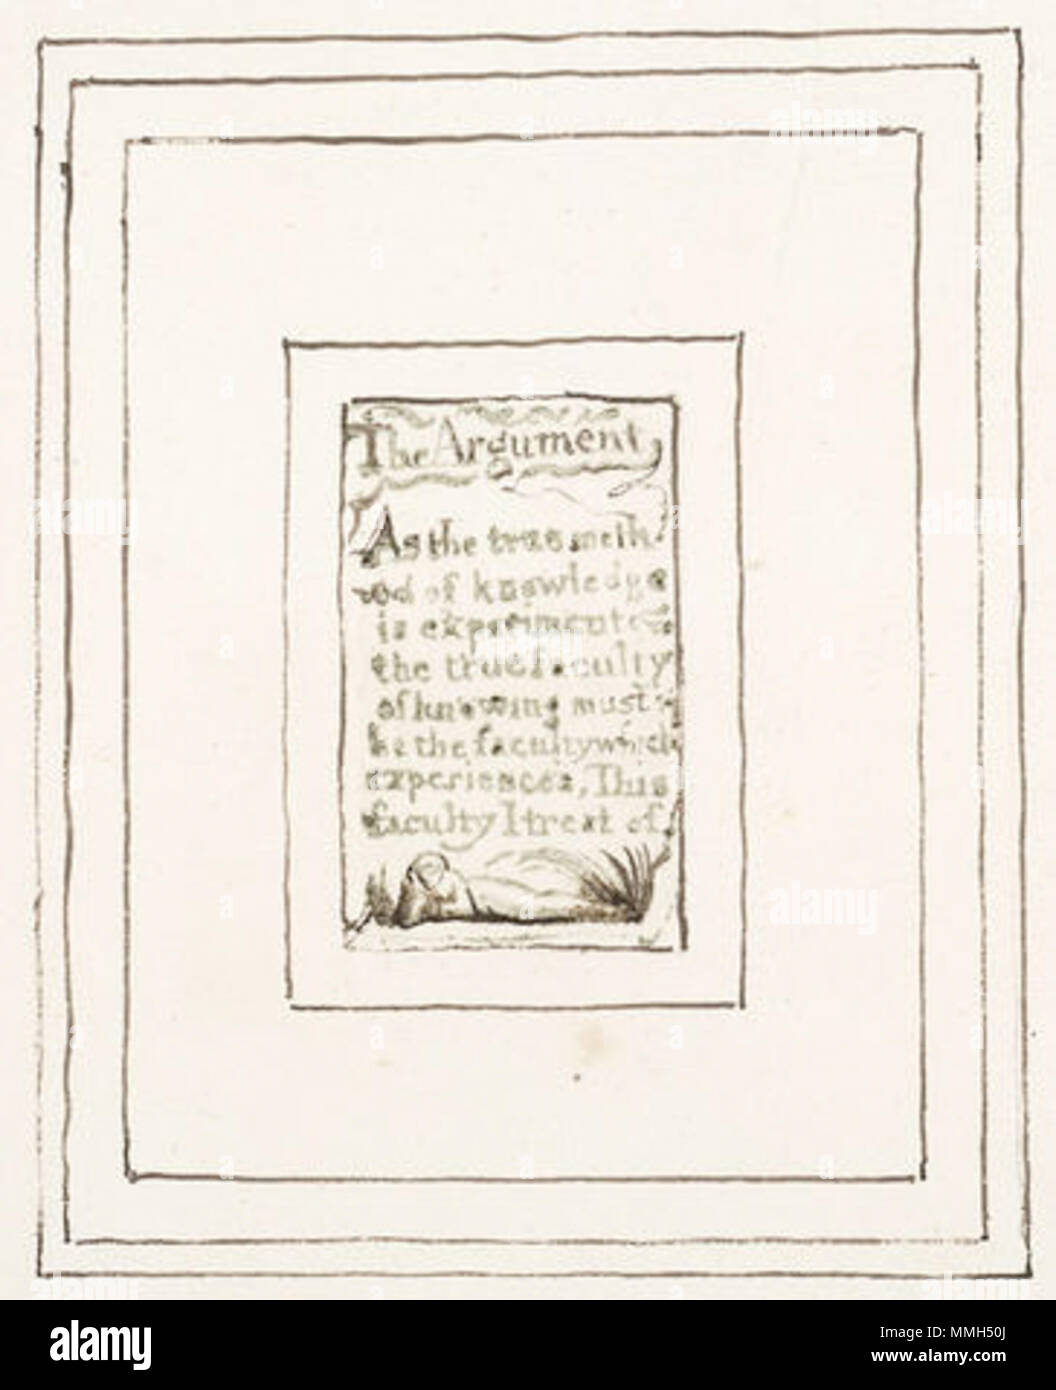 The Argument
As the true meth
od of knowledge
is experiment
the true faculty
of knowing must
be the faculty which
experiences, This
faculty I treat of.
alamy
Image ID: MMH50J
www.alamy.com